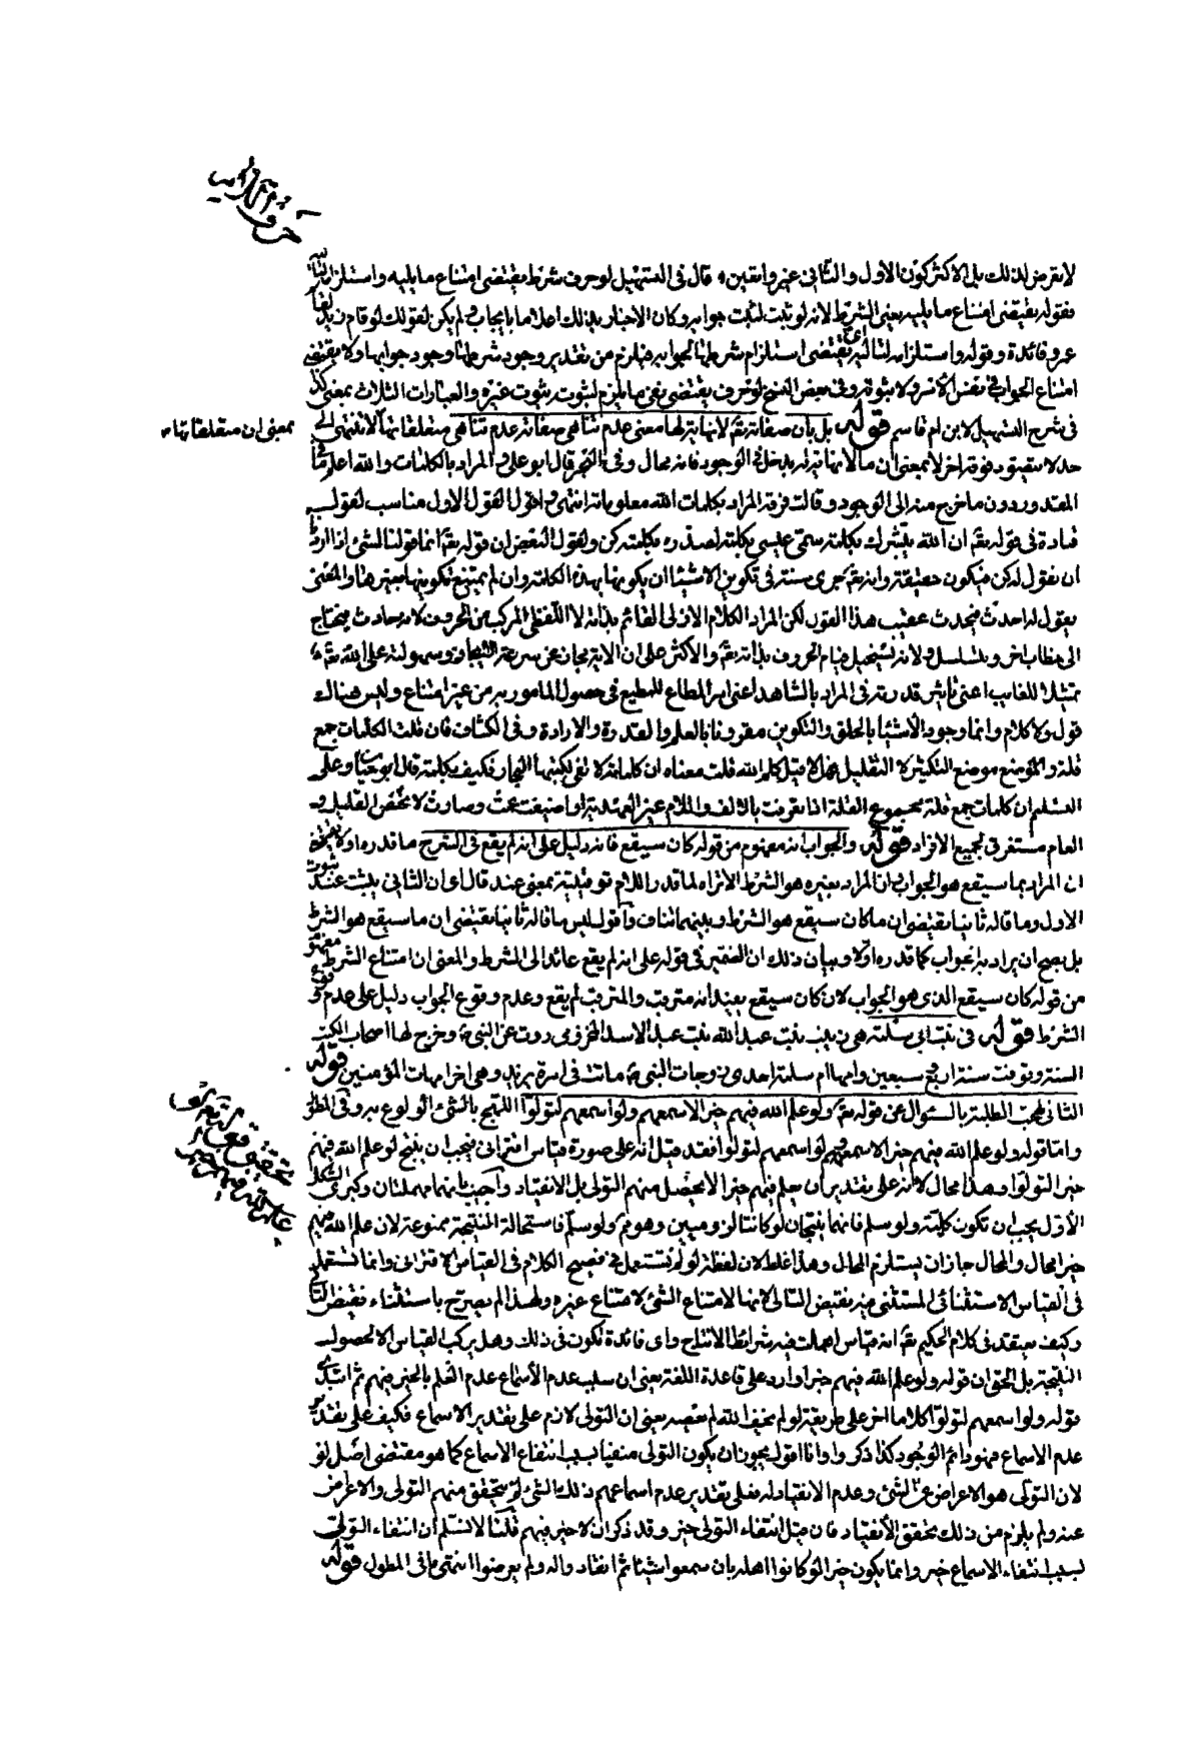 لا تعرض لذلك بل الاكثر كون الاول والثاني غير واقعين قال في التسهيل لو حرف شرط يقتضي امتناع ما يليه واستلزامه لتاليه
فقوله يقتضي امتناع ما يليه يعني الشرط لانه لو ثبت لثبت جوابه وكان الاخبار بذلك اعلاما بايجاب ولم يكن لقولك لو قام زيد لقام
عمرو فائدة وقوله واستلزامه لتاليه اي يقتضي استلزام شرطها لجوابه فيلزم من تقدير وجود شرطها وجود جوابها ولا يقتضي
امتناع الجواب في نفس الامر ولا ثبوته وفي بعض النسخ لو حرف يقتضي نفي ما يلزم لثبوته ثبوت غيره والعبارات الثلاث بمعنى كذا
في شرح التسهيل لابن ام قاسم قوله بل بان صفاته تع لا نهاية لها معنى عدم تناهي صفاته عدم تناهي متعلقاتها لا تنتهي الى
بمعنى ان متعلقاتها
حد لا يتصور فوقه اخر لا بمعنى ان ما لا نهاية له يدخل في الوجود فانه محال وفي البحر قال ابو علي المراد بالكلمات والله اعلم ما في
المقدور دون ما خرج منه الى الوجود وقالت فرقة المراد بكلمات الله معلوماته انتهى واقول القول الاول مناسب لقول
قتادة في قوله تع ان الله يبشرك بكلمة سمي عيسى بكلمة لصدوره بكلمة كن ولقول البعض ان قوله تع انما قولنا لشئ اذا اردناه
ان نقول له كن فيكون حقيقة وانه تع جرى سنته في تكوين الاشيا ان يكونها بهذه الكلمة وان لم يمتنع تكوينها بغيرها والمعنى
يقول له احدث فيحدث عقيب هذا القول لكن المراد الكلام الازلي القائم بذاته لا اللفظي المركب من الحروف لانه حادث يحتاج
الى خطاب اخر ويتسلسل ولانه يستحيل قيام الحروف بذاته تع والاكثر على ان الاية مجاز عن سرعة الايجاد وسهولته على الله تع
تمثيلا للغايب اعني تاثير قدرته في المراد بالشاهد اعني امر المطاع للمطيع في حصول المامور به من غير امتناع وليس هناك
قول ولا كلام وانما وجود الاشيا بالخلق والتكوين مقرونا بالعلم والقدرة والارادة وفي الكشاف فان قلت الكلمات جمع
قلة والموضع موضع التكثير لا التقليل فهلا قيل كلم الله قلت معناه ان كلماته لا تفي بكتبها البحار فكيف بكلمه قال ابو حيان وعلى
التسليم ان كلمات جمع قلة فجموع القلة اذا تعرفت بالالف واللام غير العهدية او اضيفت عمت وصارت لا تخص القليل و
العام مستغرق لجميع الافراد قوله والجواب انه مفهوم من قوله كان سيقع فانه دليل على انه لم يقع في الشرح ما قدره اولا يقتضي
ان المراد بما سيقع هو الجواب لان المراد بغيره هو الشرط الا تراه لما قدر اللام توقيتية بمعنى عند قال اي ان الثاني يثبت عند ثبوت
الاول وما قاله ثانيا يقتضي ان ما كان سيقع هو الشرط وبينهما تناف واقول ليس ما قاله ثانيا يقتضي ان ما سيقع هو الشرط
بل يصح ان يراد به الجواب كما قدره اولا وبيان ذلك ان الضمير في قوله على انه لم يقع عائد الى الشرط والمعنى ان امتناع الشرط مفهوم
من قوله كان سيقع الذي هو الجواب لان كان سيقع يفيد انه مترقب والمترقب لم يقع وعدم وقوع الجواب دليل على عدم وقوع
الشرط قوله في بنت ابي سلمة هي زينب بنت عبد الله بنت عبد الاسد المخزومي روت عن النبي وخرج لها اصحاب الكتب
الستة وتوفت سنة اربع وسبعين وامها ام سلمة احدى زوجات النبي ماتت في امرة يزيد وهي اخر امهات المؤمنين قوله
الثاني لهجت الطلبة بالسوال عن قوله تع ولو علم الله فيهم خيرا لاسمعهم ولو اسمعهم لتولوا اللهج بالشئ الولوع به وفي المطول
واما قوله ولو علم الله فيهم خيرا لاسمعهم ولو اسمعهم لتولوا فقد قيل انه على صورة قياس اقتراني فيجب ان ينتج لو علم الله فيهم
خيرا لتولوا وهذا محال لانه على تقدير ان يعلم فيهم خيرا لا يحصل منهم التولي بل الانقياد واجيب بانهما مهملتان وكبرى الشكل
الاول يجب ان تكون كلية ولو سلم فانما ينتجان لو كانتا لزوميتين وهو مم ولو سلم فاستحالة النتيجة ممنوعة لان علم الله فيهم
خيرا محال والمحال جاز ان يستلزم المحال وهذا غلط لان لفظة لو لم تستعمل في فصيح الكلام في القياس الاقتراني وانما تستعمل
في القياس الاستثنائي المستثنى فيه نقيض التالي لانها لامتناع الشئ لامتناع غيره ولهذا لم يصرح باستثناء نقيض التالي
وكيف يعتقد في كلام الحكيم تع انه قياس اهملت فيه شرائط الانتاج واي فائدة تكون في ذلك وهل يركب القياس الا لحصول
النتيجة بل الحق ان قوله ولو علم الله فيهم خيرا وارد على قاعدة اللغة يعني ان سبب عدم الاسماع عدم العلم بالخير فيهم ثم ابتدئ
قوله ولو اسمعهم لتولوا كلاما اخر على طريقة لو لم يخف الله لم يعصه يعني ان التولي لازم على تقدير الاسماع فكيف على تقدير
عدم الاسماع فهو دائم الوجود كذا ذكروا وانا اقول يجوز ان يكون التولي منفيا بسبب انتفاء الاسماع كما هو مقتضى اصل لو
لان التولي هو الاعراض عن الشئ وعدم الانقياد له فعلى تقدير عدم اسماعهم ذلك الشئ لم يتحقق منهم التولي والاعراض
عنه ولم يلزم من ذلك تحقق الانقياد فان قيل انتفاء التولي خير وقد ذكر ان لا خير فيهم قلنا لا نسلم ان انتفاء التولي
بسبب انتفاء الاسماع خير وانما يكون خيرا لو كانوا اهله بان سمعوا شيئا ثم انقادوا له ولم يعرضوا انتهى ما في المطول قوله